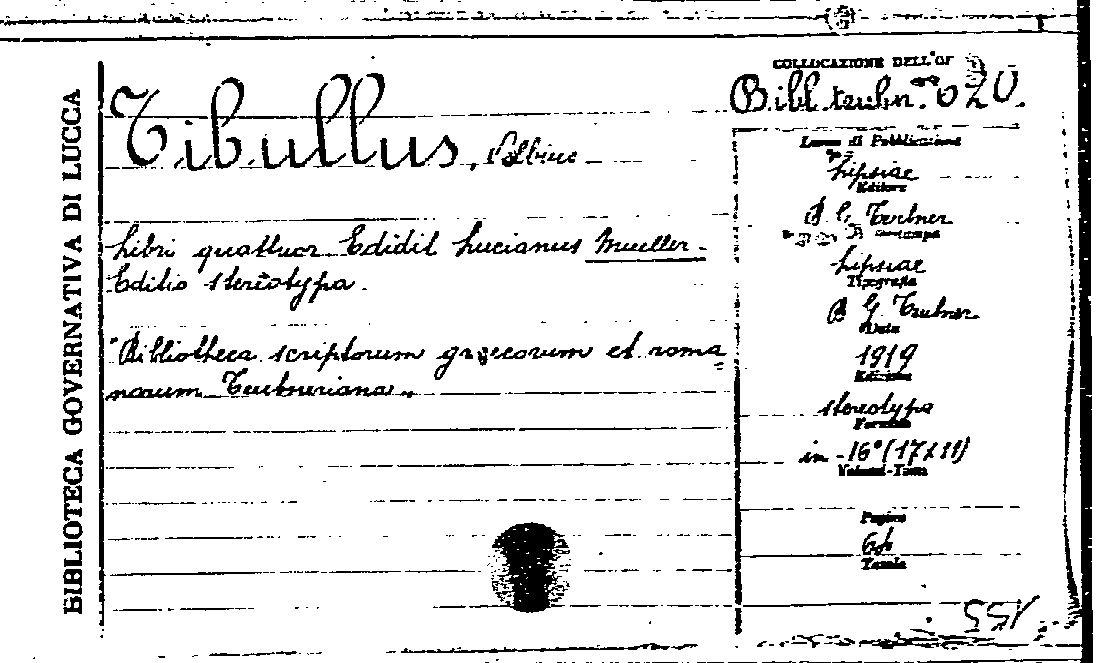 BIBLIOTECA GOVERNATIVA DI LUCCA
Tibullus, Albius
Libri quattuor Edidit Lucianus Mueller -
Editio stereotypa.
"Bibliotheca scriptorum graecorum et roma
narum Teubneriana".
COLLOCAZIONE DELL'OP
Bibl. teubn. 020.
Luogo di Pubblicazione
Lipsiae
Editore
B. G. Teubner
Lipsiae
Tipografia
B G Teubner
Data
1919
Edizione
stereotypa
Formato
in -16° (17x11)
Volumi-Tomi
Pagine
Tavole
155